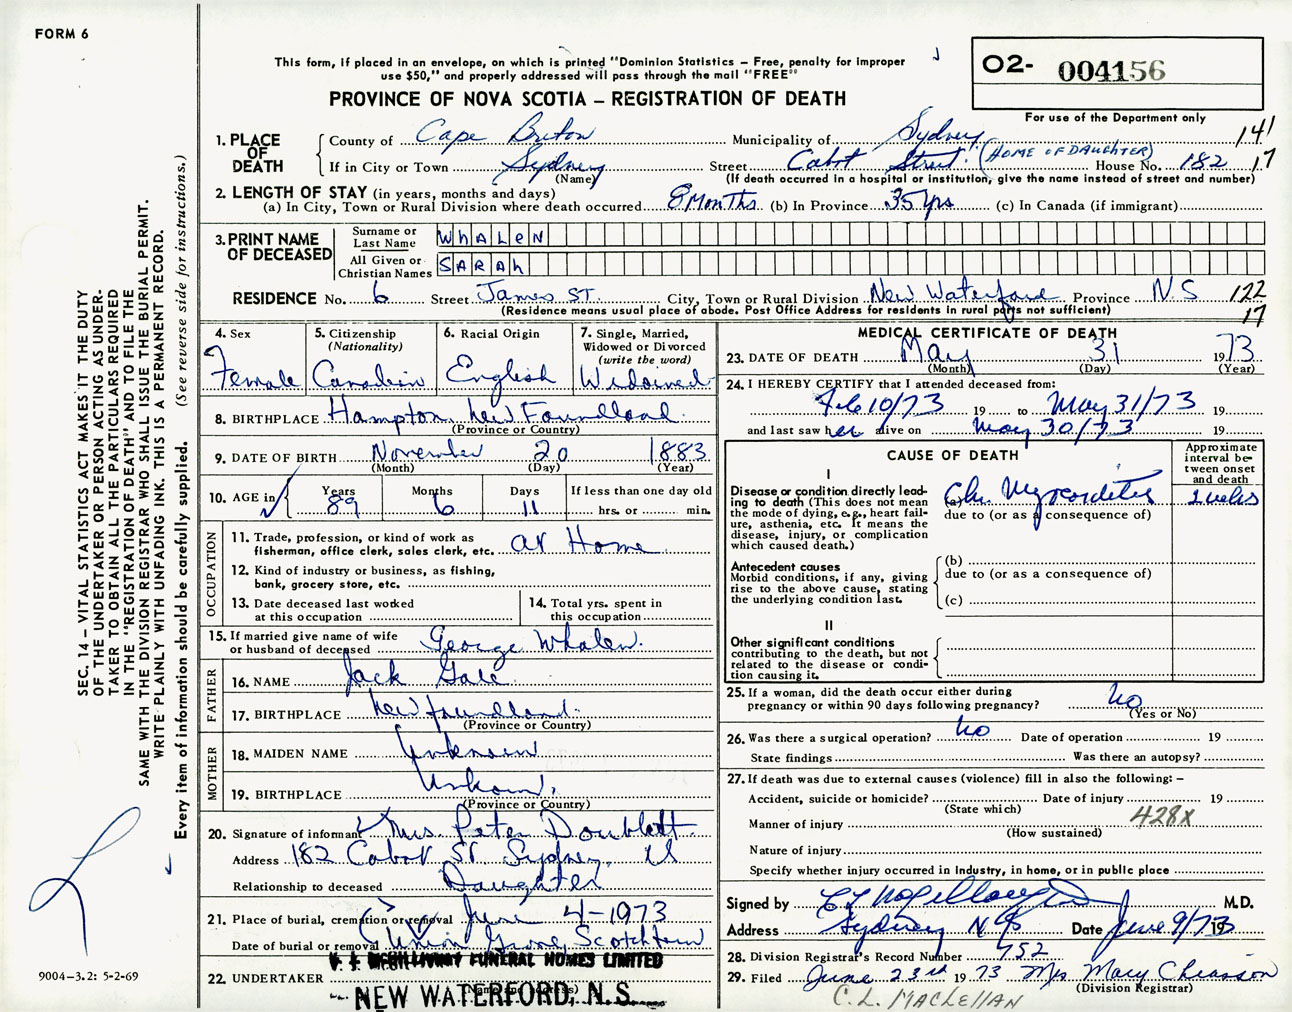 FORM 6
This form, if placed in an envelope, on which is printed "Dominion Statistics – Free, penalty for improper
use $50," and properly addressed will pass through the mail "FREE"
PROVINCE OF NOVA SCOTIA – REGISTRATION OF DEATH
O2- 004156
For use of the Department only
1. PLACE OF DEATH
County of Cape Breton Municipality of Sydney 141
If in City or Town Sydney Street Cabot Street (HOME OF DAUGHTER) House No. 182 17
(Name) (If death occurred in a hospital or institution, give the name instead of street and number)
2. LENGTH OF STAY (in years, months and days)
(a) In City, Town or Rural Division where death occurred 8 Months (b) In Province 35 yrs (c) In Canada (if immigrant)
3. PRINT NAME OF DECEASED
Surname or Last Name WHALEN
All Given or Christian Names SARAH
RESIDENCE No. 6 Street James ST. City, Town or Rural Division New Waterford Province N.S 122
(Residence means usual place of abode. Post Office Address for residents in rural parts not sufficient) 17
4. Sex Female
5. Citizenship (Nationality) Canadian
6. Racial Origin English
7. Single, Married, Widowed or Divorced (write the word) Widowed
8. BIRTHPLACE Hampton, New Foundland
(Province or Country)
9. DATE OF BIRTH November 20 1883
(Month) (Day) (Year)
10. AGE in Years 89 Months 6 Days 11 If less than one day old
hrs. or min.
OCCUPATION
11. Trade, profession, or kind of work as
fisherman, office clerk, sales clerk, etc. at Home
12. Kind of industry or business, as fishing,
bank, grocery store, etc.
13. Date deceased last worked
at this occupation
14. Total yrs. spent in
this occupation
15. If married give name of wife
or husband of deceased George Whalen
FATHER
16. NAME Jack Gale
17. BIRTHPLACE Newfoundland
(Province or Country)
MOTHER
18. MAIDEN NAME Unknown
19. BIRTHPLACE Unknown
(Province or Country)
20. Signature of informant Mrs. Peter
Address 182 Cabot St. Sydney
Relationship to deceased Daughter
21. Place of burial, cremation or removal June 4-1973
Date of burial or removal Union Grove, Scotchtown
22. UNDERTAKER
(Name and address)
FUNERAL HOMES LIMITED
NEW WATERFORD, N.S.
MEDICAL CERTIFICATE OF DEATH
23. DATE OF DEATH May 31 1973
(Month) (Day) (Year)
24. I HEREBY CERTIFY that I attended deceased from:
Feb 10/73 19 to May 31/73 19
and last saw her alive on May 30/73 19
CAUSE OF DEATH
Approximate interval between onset and death
I
Disease or condition directly leading to death (This does not
mean the mode of dying, e.g., heart failure, asthenia, etc. It means the
disease, injury, or complication
which caused death.)
(a) Chr. Myocarditis 2 weeks
due to (or as a consequence of)
Antecedent causes
Morbid conditions, if any, giving
rise to the above cause, stating
the underlying condition last.
(b)
due to (or as a consequence of)
(c)
II
Other significant conditions
contributing to the death, but not
related to the disease or condition causing it.
25. If a woman, did the death occur either during
pregnancy or within 90 days following pregnancy? No
(Yes or No)
26. Was there a surgical operation? No Date of operation 19
State findings Was there an autopsy?
27. If death was due to external causes (violence) fill in also the following: –
Accident, suicide or homicide? Date of injury 19
(State which)
Manner of injury 428X
(How sustained)
Nature of injury
Specify whether injury occurred in industry, in home, or in public place
Signed by M.D.
Address Sydney N S Date June 9/73 19
28. Division Registrar's Record Number 752
29. Filed June 23rd 1973 Mrs Mary Chiasson
(Division Registrar)
C. L. MACLELLAN
SEC. 14 – VITAL STATISTICS ACT MAKES IT THE DUTY
OF THE UNDERTAKER OR PERSON ACTING AS UNDER-
TAKER TO OBTAIN ALL THE PARTICULARS REQUIRED
IN THE "REGISTRATION OF DEATH" AND TO FILE THE
SAME WITH THE DIVISION REGISTRAR WHO SHALL ISSUE THE BURIAL PERMIT.
WRITE PLAINLY WITH UNFADING INK. THIS IS A PERMANENT RECORD.
Every item of information should be carefully supplied. (See reverse side for instructions.)
9004-3.2: 5-2-69